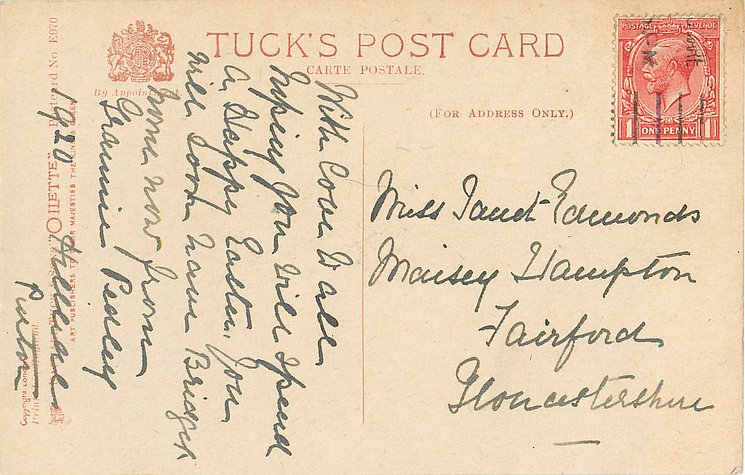 TUCK'S POST CARD
CARTE POSTALE.
By Appointment
(FOR ADDRESS ONLY.)
POSTAGE REVENUE
1 ONE PENNY 1
Postcard No. E970
"OILETTE"
ART PUBLISHERS TO THEIR MAJESTIES THE KING & QUEEN
Copyright
With Love to all
Hoping You will Spend
a Happy Easter. You
will soon have Bridget
home now from
Grannie Pedley
1920
Purton
Miss Janet Edmonds
Maisey Hampton
Fairford
Gloucestershire